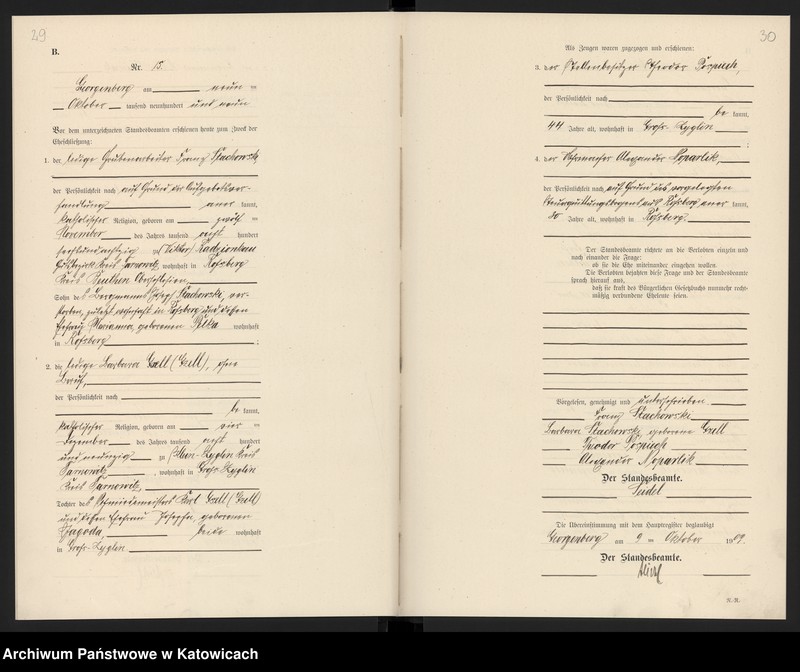 29
B.
Nr. 15.
Georgenberg am neun ten
Oktober tausend neunhundert und neun
Vor dem unterzeichneten Standesbeamten erschienen heute zum Zweck der
Eheschließung:
1. der ledige Grubenarbeiter Franz Stachowski
der Persönlichkeit nach auf Grund der Aufgebotsver-
handlung aner kannt,
katholischer Religion, geboren am
November des Jahres tausend acht hundert
zu Radzionkau
Kreis Tarnowitz, wohnhaft in Roßberg
Kreis Beuthen Oberschlesien,
Sohn des Bergmanns Josef Stachowski, ver-
storben, zuletzt wohnhaft in Roßberg und dessen
Ehefrau Marianna, geborenen Pilka wohnhaft
in Roßberg ;
2. die ledige Barbara Gzell (Gsell), ohne
Beruf,
der Persönlichkeit nach
be kannt,
katholischer Religion, geboren am vier ten
Dezember des Jahres tausend acht hundert
und neunzig zu Klein-Zyglin Kreis
Tarnowitz, wohnhaft in Groß-Zyglin
Kreis Tarnowitz,
Tochter des Schmiedemeisters Karl Gzell (Gsell)
und dessen Ehefrau Josepha, geborenen
Jagoda, beide wohnhaft
in Groß-Zyglin
30
Als Zeugen waren zugezogen und erschienen:
3. der Stellenbesitzer Theodor Pospiech,
der Persönlichkeit nach
be kannt,
44 Jahre alt, wohnhaft in Groß-Zyglin ;
4. der Alexander Noparlik,
der Persönlichkeit nach auf Grund des vorgelegten
aus Roßberg aner kannt,
30 Jahre alt, wohnhaft in Roßberg.
Der Standesbeamte richtete an die Verlobten einzeln und
nach einander die Frage:
ob sie die Ehe miteinander eingehen wollen.
Die Verlobten bejahten diese Frage und der Standesbeamte
sprach hierauf aus,
daß sie kraft des Bürgerlichen Gesetzbuchs nunmehr recht-
mäßig verbundene Eheleute seien.
Vorgelesen, genehmigt und unterschrieben
Franz Stachowski
Barbara Stachowski geborene Gzell
Theodor Pospiech
Alexander Noparlik
Der Standesbeamte.
Seidel
Die Übereinstimmung mit dem Hauptregister beglaubigt
Georgenberg am 9 ten Oktober 1909.
Der Standesbeamte.
Seidel
N.-R.
Archiwum Państwowe w Katowicach